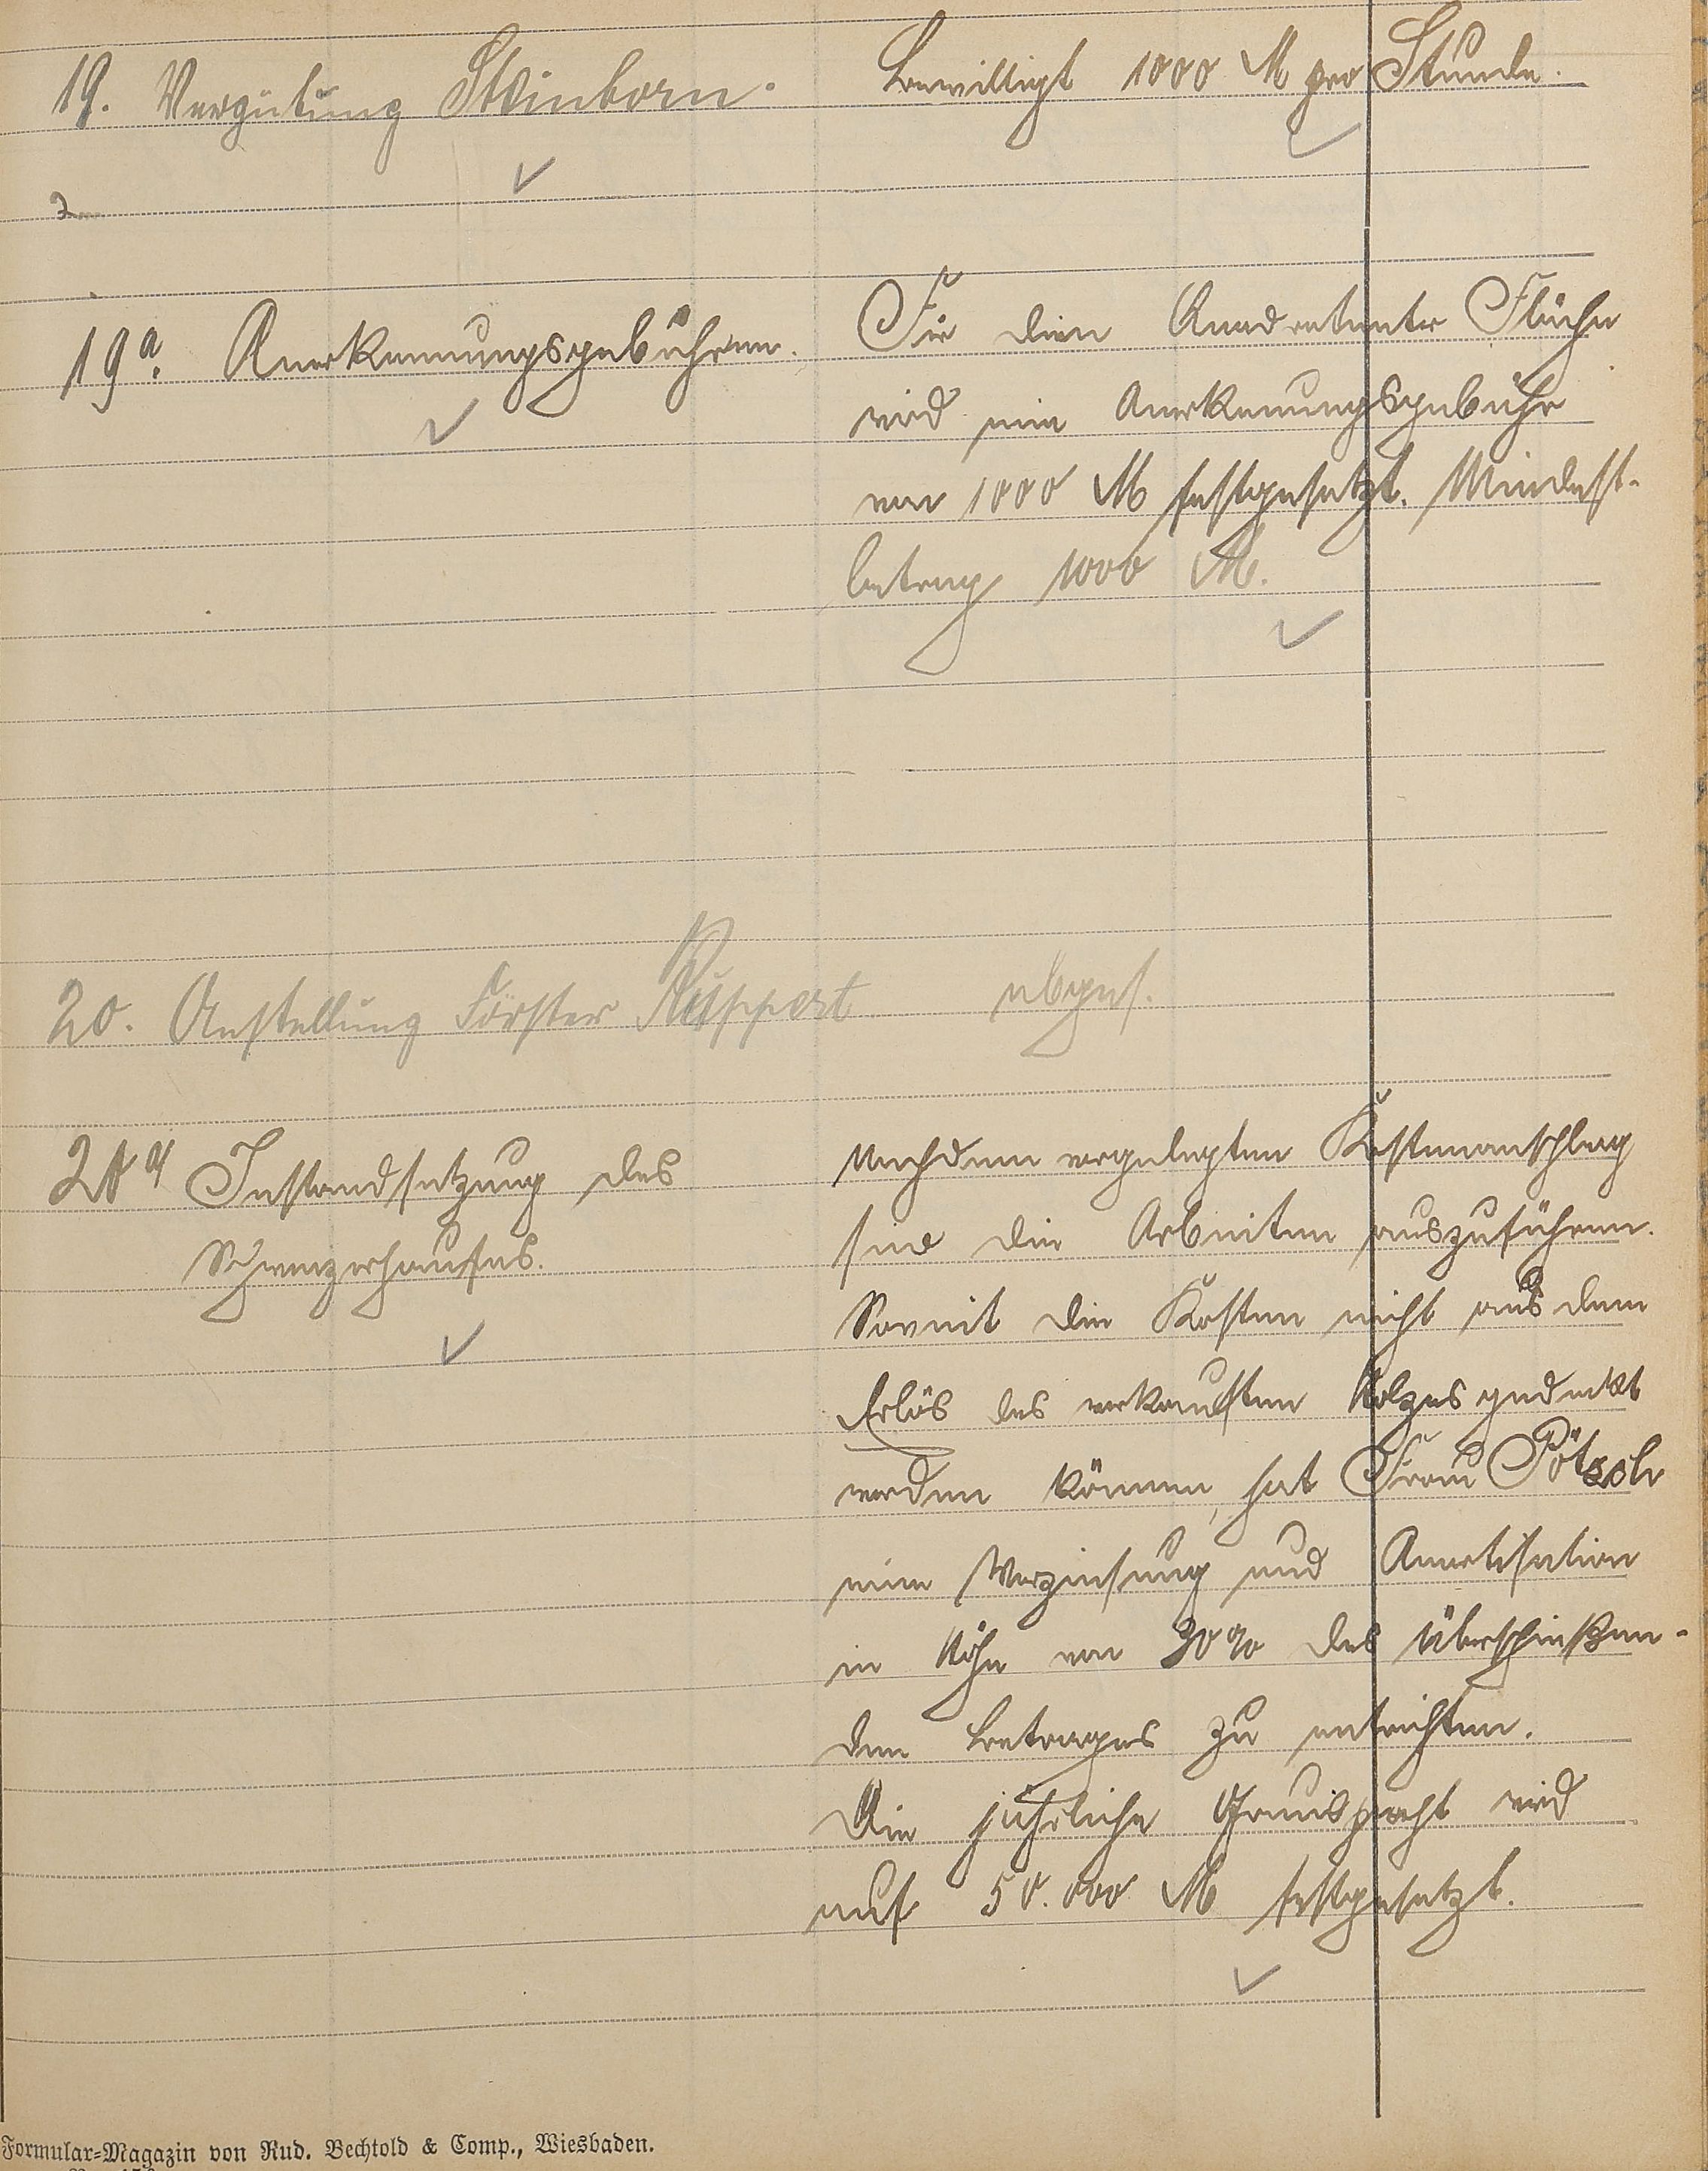 19. Vergütung Steinborn.
Bewilligt 1000 M pro Stunde.
19a. Anerkennungsgebühren.
Für den Quadratmeter Fläche
wird eine Anerkennungsgebühr
von 1000 M festgesetzt. Mindest-
betrag 1000 M.
20. Anstellung Förster Ruppert
abges.
20 a) Instandsetzung des
Schweizerhauses.
Nach dem vorgelegten Kostenanschlag
sind die Arbeiten auszuführen.
Soweit die Kosten nicht aus dem
Erlös des verkauften Holzes gedeckt
werden können, hat Frau Pötzsch
eine Verzinsung und Amortisation
in Höhe von 30% des überschießen-
den Betrages zu entrichten.
Die jährliche Grundpacht wird
auf 50.000 M festgesetzt.
Formular-Magazin von Rud. Bechtold & Comp., Wiesbaden.